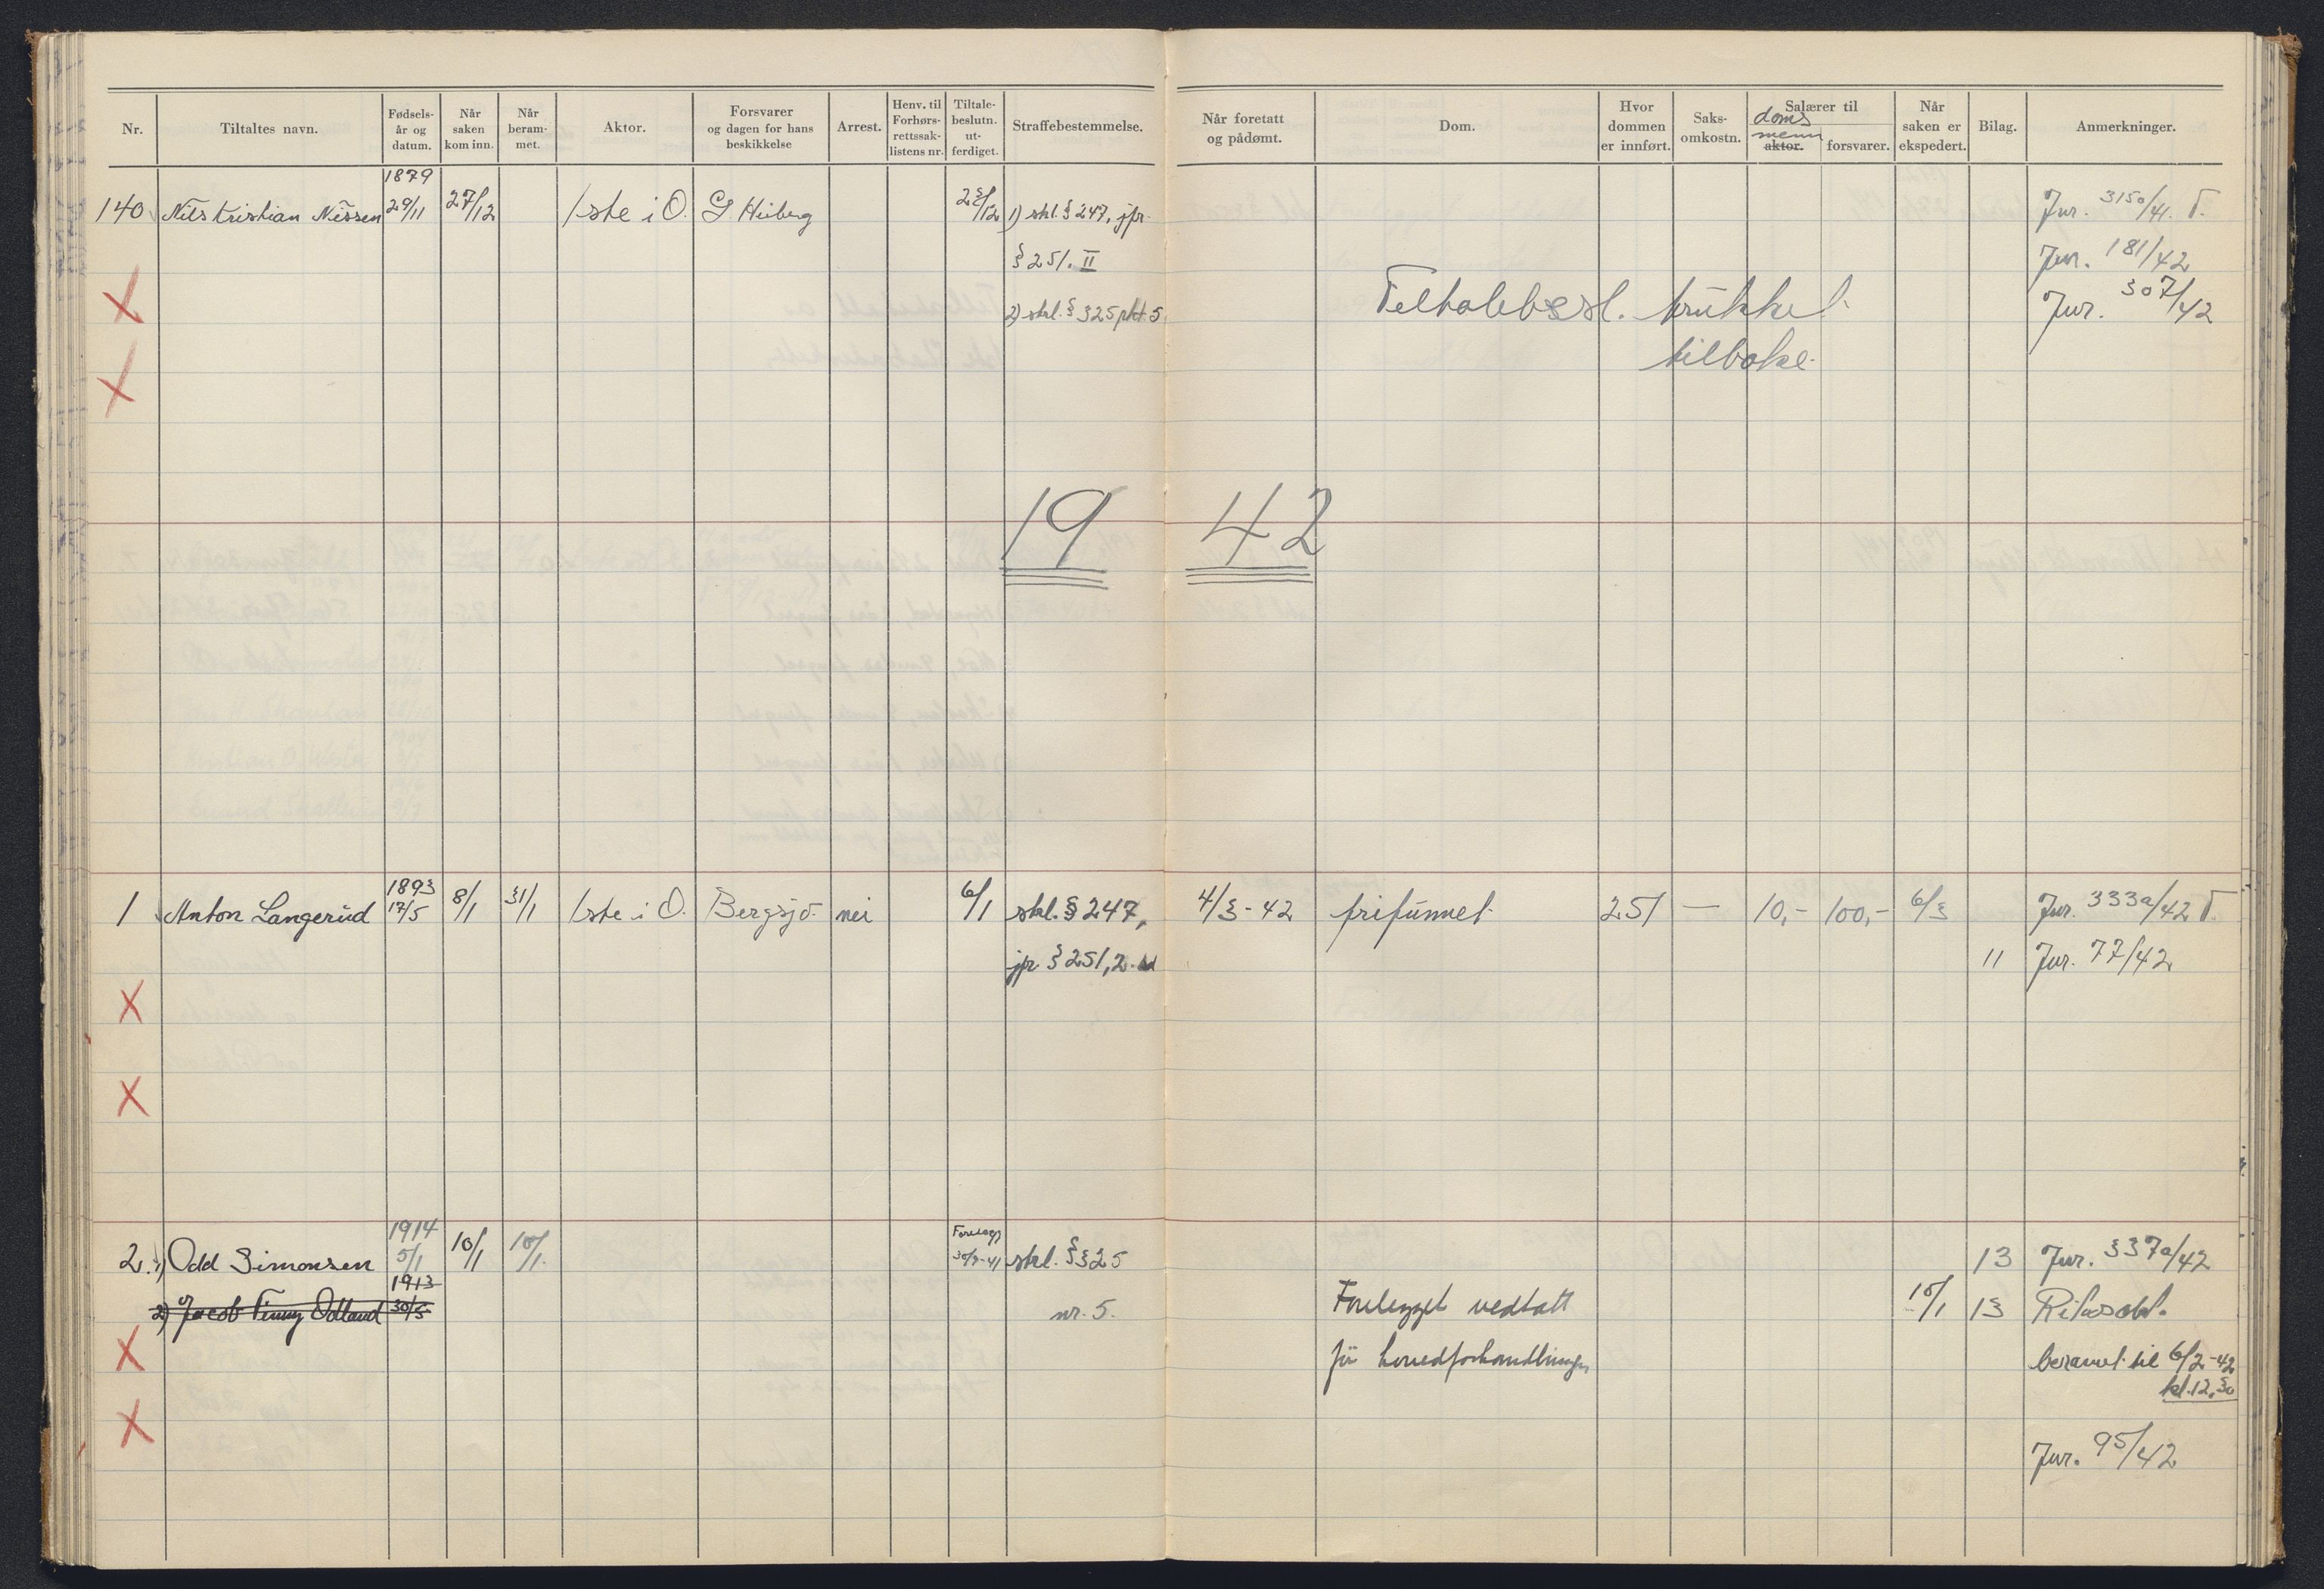 Nr. Tiltaltes navn. Fødsels-år og datum. Når saken kom inn. Når beram-met. Aktor. Forsvarer og dagen for hans beskikkelse Arrest. Henv. til Forhørs-rettssak-listens nr. Tiltale-beslutn. ut-ferdiget. Straffebestemmelse. Når foretatt og pådømt. Dom. Hvor dommen er innført. Saks-omkostn. Salærer til doms menn aktor. forsvarer. Når saken er ekspedert. Bilag. Anmerkninger.
1879
140 Nils Kristian Nissen 29/11 27/12 1ste i O. G Hiberg 22/12 1) strl. § 247, jfr. Jur. 3150/41. T.
§ 251. II Jur. 181/42
2) strl. § 325 pkt 5. Teltalebesl. trukket Jur. 307/42
tilbake.
19 42
1893
1 Anton Langerud 17/5 8/1 31/1 1ste i O. Bergsjø. nei 6/1 strl. § 247, 4/3-42 frifunnet 251 — 10,- 100,- 6/3 Jur. 333a/42 T.
jfr § 251, 2. ld 11 Jur. 77/42
1914 Forelegg
2. 1) Odd Simonsen 5/1 10/1 10/1. 30/9-41 strl. § 325 13 Jur. 337a/42
1913
2) Jacob Finny Odland 30/5 nr. 5. Forelegget vedtatt 10/1 13
før hovedforhandlingen beramt til 6/2-42
kl. 12,30
Jur. 95/42